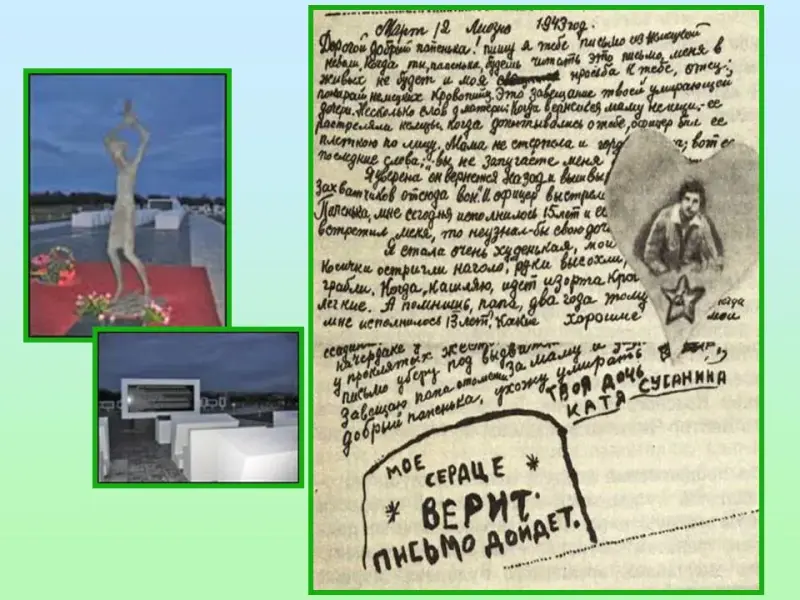 Март, 12, Лиозно, 1943 год.
Дорогой, добрый папенька! пишу я тебе письмо из немецкой
неволи. Когда ты, папенька, будешь читать это письмо, меня в
живых не будет и моя просьба к тебе, отец:
покарай немецких кровопийц. Это завещание твоей умирающей
дочери. Несколько слов о матери. Когда вернешься маму не ищи. ее
расстреляли немцы. Когда допытывались о тебе, офицер бил ее
плеткою по лицу. Мама не стерпела и вот ее
последние слова: "вы не запугаете меня
Я уверена он вернется назад и вышвыр
захватчиков отсюда вон." И офицер выстрел
Папенька, мне сегодня исполнилось 15 лет и ес
встретил меня, то не узнал-бы свою доч
Я стала очень худенькая, мои
косички остригли наголо, руки высохли,
грабли. Когда кашляю, идет изо рта кро
легкие. А помнишь, папа, два года тому когда
мне исполнилось 13 лет! Какие хорошие мои
на чердаке
у проклятых жест
письмо уберу под
Завещаю папа отомсти за маму и
добрый папенька, ухожу умирать
ТВОЯ ДОЧЬ
КАТЯ СУСАНИНА
МОЕ
СЕРДЦЕ
ВЕРИТ.
ПИСЬМО ДОЙДЕТ.